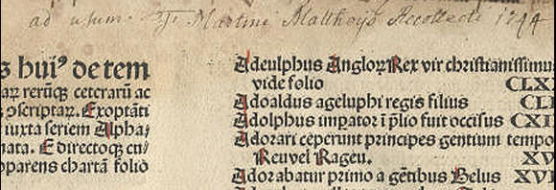 ad usum Fr Martini Matthoys Recollecti 1744
s huiꝰ de tem
aꝝ rerūqꝫ ceterarū ac
ↄscriptaꝝ. Exoptāti
iuxta seriem Alpha⸗
nata. E directoqꝫ cu⸗
pparens chartā folio
Adeulphus Angloꝝ Rex vir christianissimu
vide folio CLX
Adoaldus agelulphi regis filius CLI
Adolphus imꝑator ī plio fuit occisus CXI
Adorari ceperunt principes gentium tempo
Reuvel Rageu. XV
Adorabatur primo a gētibus Belus XVI